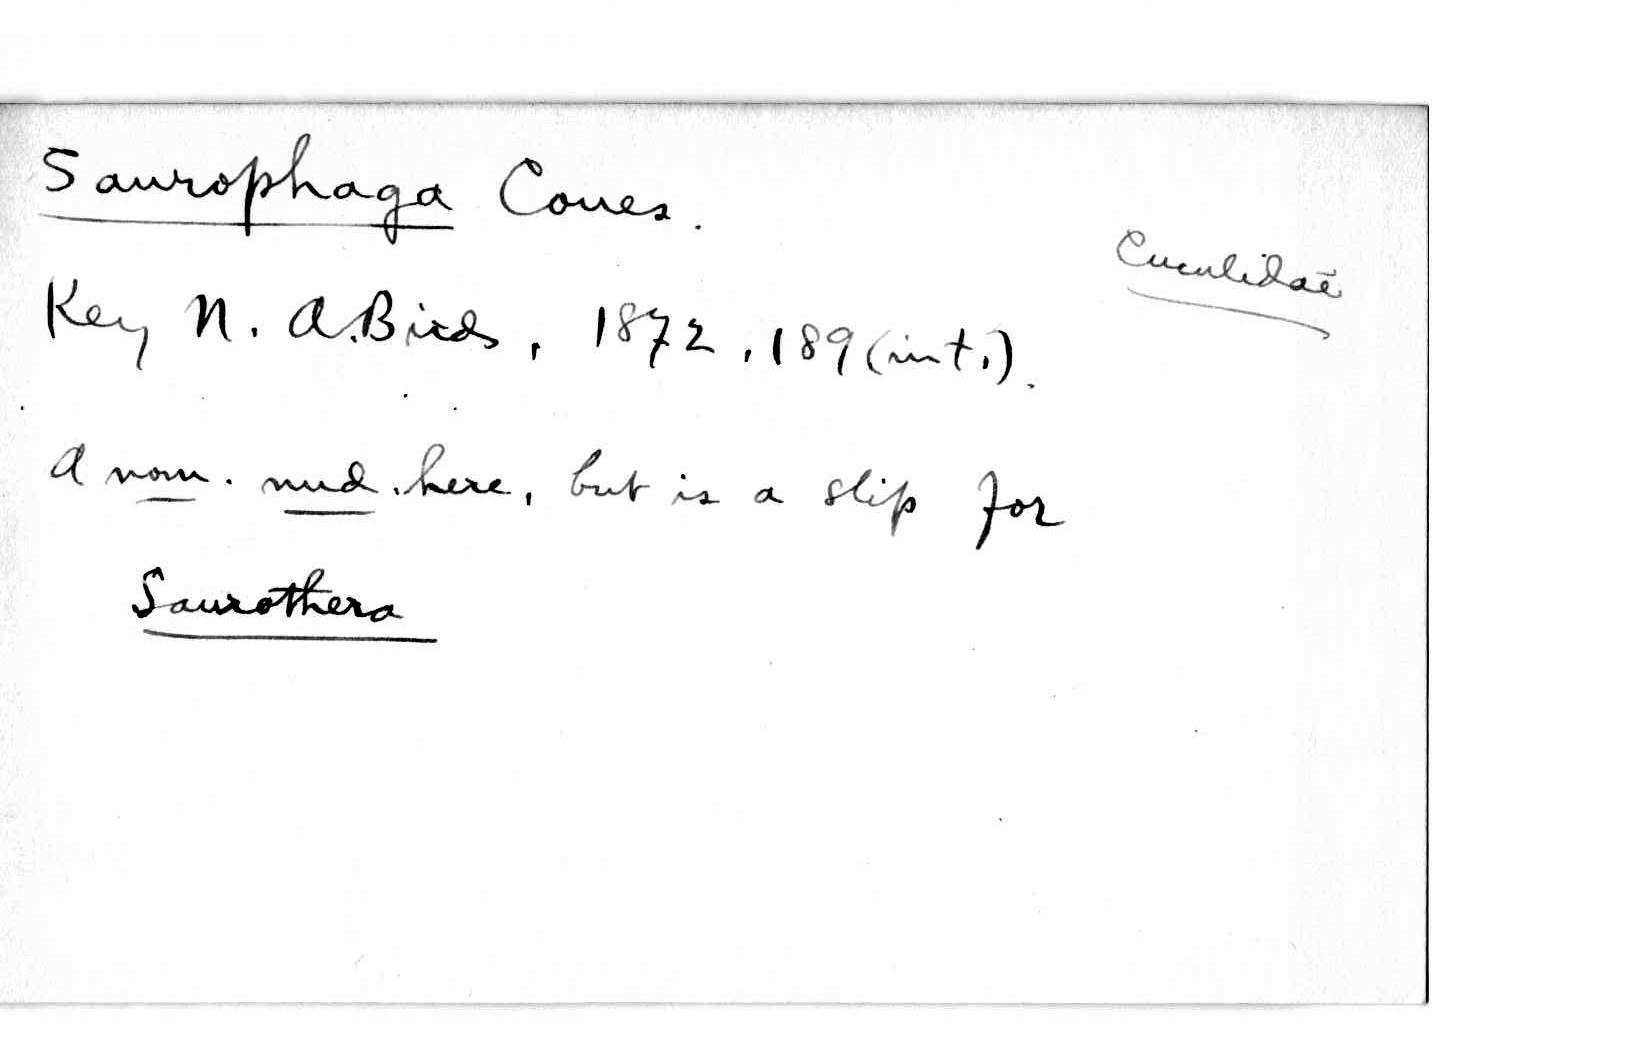 Saurophaga Coues.
Cuculidae
Key N. A. Birds, 1872, 189 (int.).
A nom. nud. here, but is a slip for
Saurothera